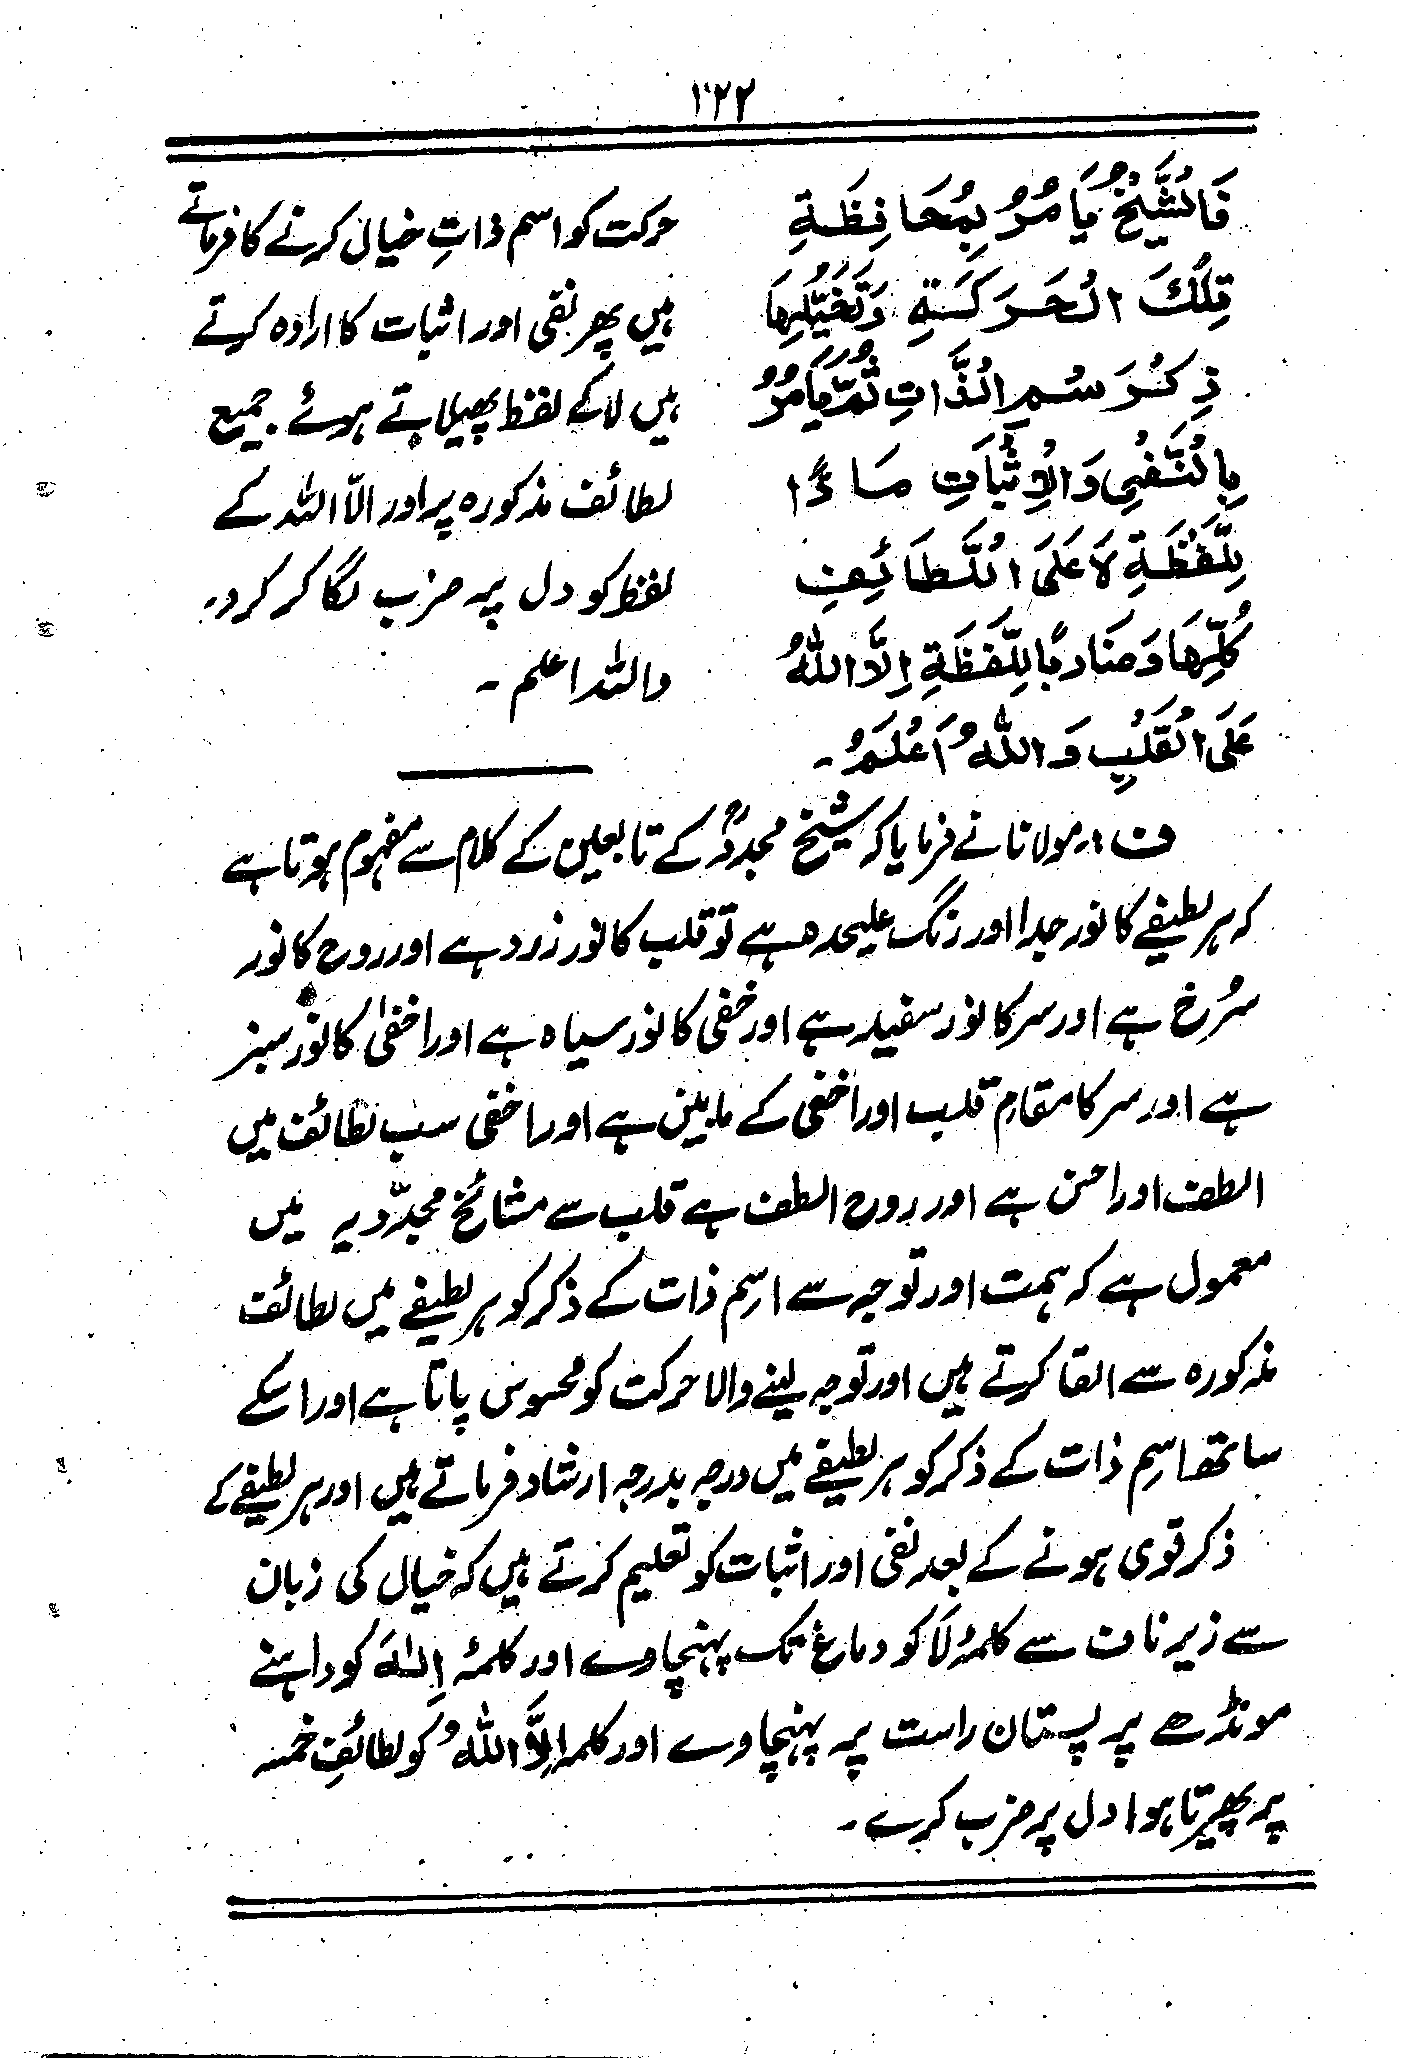 ۱۲۲
فَالشَّیْخُ یَامُرُ بِمُحَافِظَۃِ
تِلْکَ الْحَرَکَۃِ وَتَخَیُّلِہَا
ذِکْرَ سْمِ الذَّاتِ ثُمَّ یَامُرُ
بِالنَّفْیِ وَالْاِثْبَاتِ مَادًّا
بِلَّفْظَۃِ لَا عَلَی اللَّطَائِفِ
کُلِّہَا وَضَارِبًا بِاللَّفْظَۃِ اِلَّا اللّٰہُ
عَلَی الْقَلْبِ وَاللّٰہُ اَعْلَمُ۔
حرکت کو اسم ذاتِ خیال کرنے کا فرماتے
ہیں پھر نفی اور اثبات کا ارادہ کرتے
ہیں لا کے لفظ پھیلاتے ہوئے جمیع
لطائف مذکورہ پر اور الّا اللہ کے
لفظ کو دل پر ضرب لگا کر کرد۔
واللہ اعلم۔
ف: مولانا نے فرمایا کہ شیخ مجددؒ کے تابعین کے کلام سے مفہوم ہوتا ہے
کہ ہر لطیفے کا نور جدا اور رنگ علیحدہ ہے تو قلب کا نور زرد ہے اور روح کا نور
سُرخ ہے اور سر کا نور سفید ہے اور خفی کا نور سیاہ ہے اور اخفیٰ کا نور سبز
ہے اور سر کا مقام قلب اور اخفی کے مابین ہے اور اخفی سب لطائف میں
الطف اور احسن ہے اور روح الطف ہے قلب سے مشائخ مجدّدیہ میں
معمول ہے کہ ہمت اور توجہ سے اسِم ذات کے ذکر کو ہر لطیفے میں لطائف
مذکورہ سے القا کرتے ہیں اور توجہ لینے والا حرکت کو محسوس پاتا ہے اور اسکے
ساتھ اسِم ذات کے ذکر کو ہر لطیفے میں درجہ بدرجہ ارشاد فرماتے ہیں اور ہر لطیفے کے
ذکر قوی ہونے کے بعد نفی اور اثبات کو تعلیم کرتے ہیں کہ خیال کی زبان
سے زیر ناف سے کلمۂ لَا کو دماغ تک پہنچاوے اور کلمۂ اِلٰہَ کو داہنے
مونڈھے پر پستان راست پر پہنچاوے اور کلمہ اِلَّا اللّٰہُ کو لطائفِ خمسہ
پر پھیرتا ہوا دل پر ضرب کرے۔